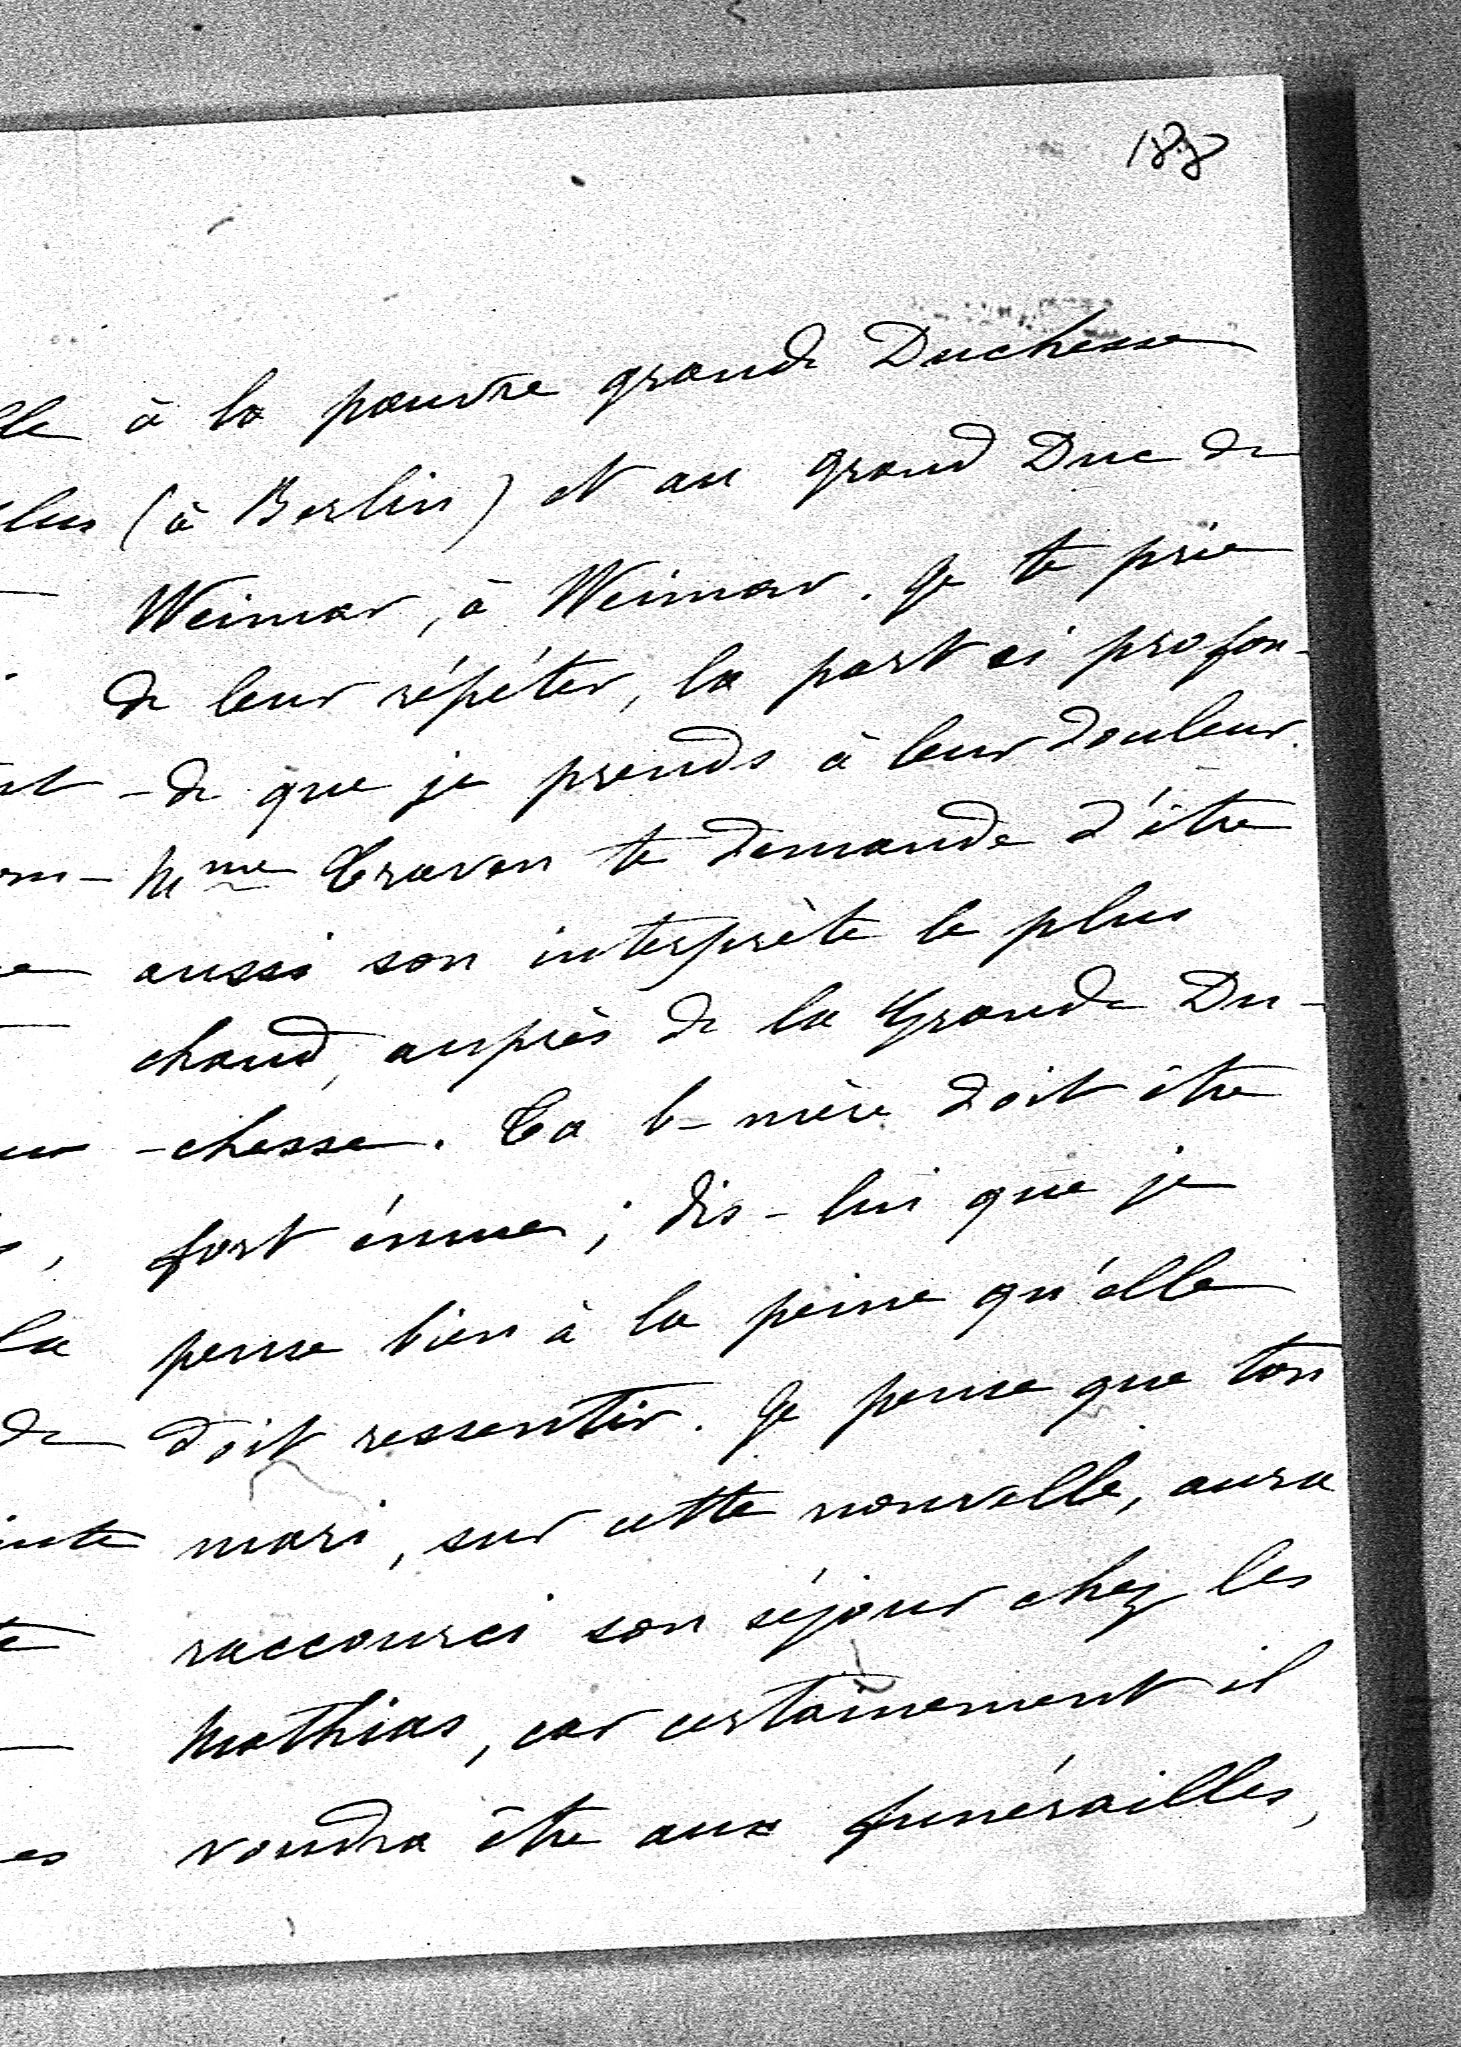 188
à la pauvre grande Duchesse
(à Berlin) et au grand Duc de
Weimar, à Weimar. Je te prie
de leur répéter, la part si profon-
-de que je prends à leur douleur.
Mme Craven te demande d'être
aussi son interprète le plus
chaud, auprès de la Grande Du-
-chesse. Ta b-mère doit être
fort émue; dis-lui que je
pense bien à la peine qu'elle
doit ressentir. Je pense que ton
mari, sur cette nouvelle, aura
raccourci son séjour chez les
Mathias, car certainement il
voudra être aux funérailles,